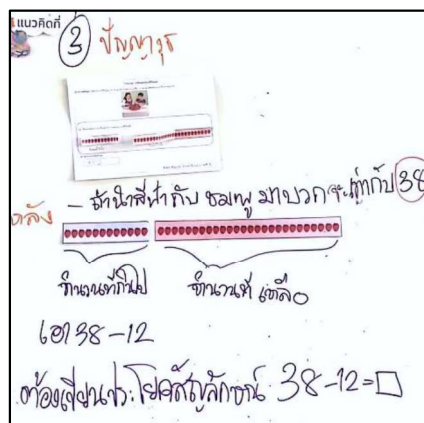 แนวคิดที่
3 ปัญญาวุธ
คลัง
- ถ้านำสีฟ้ากับ ชมพู มาบวก จะเท่ากับ 38
จำนวนที่กินไป จำนวนที่ เหลือ
เอา 38-12
ต้องเขียนประโยคสัญลักษณ์ 38-12=□